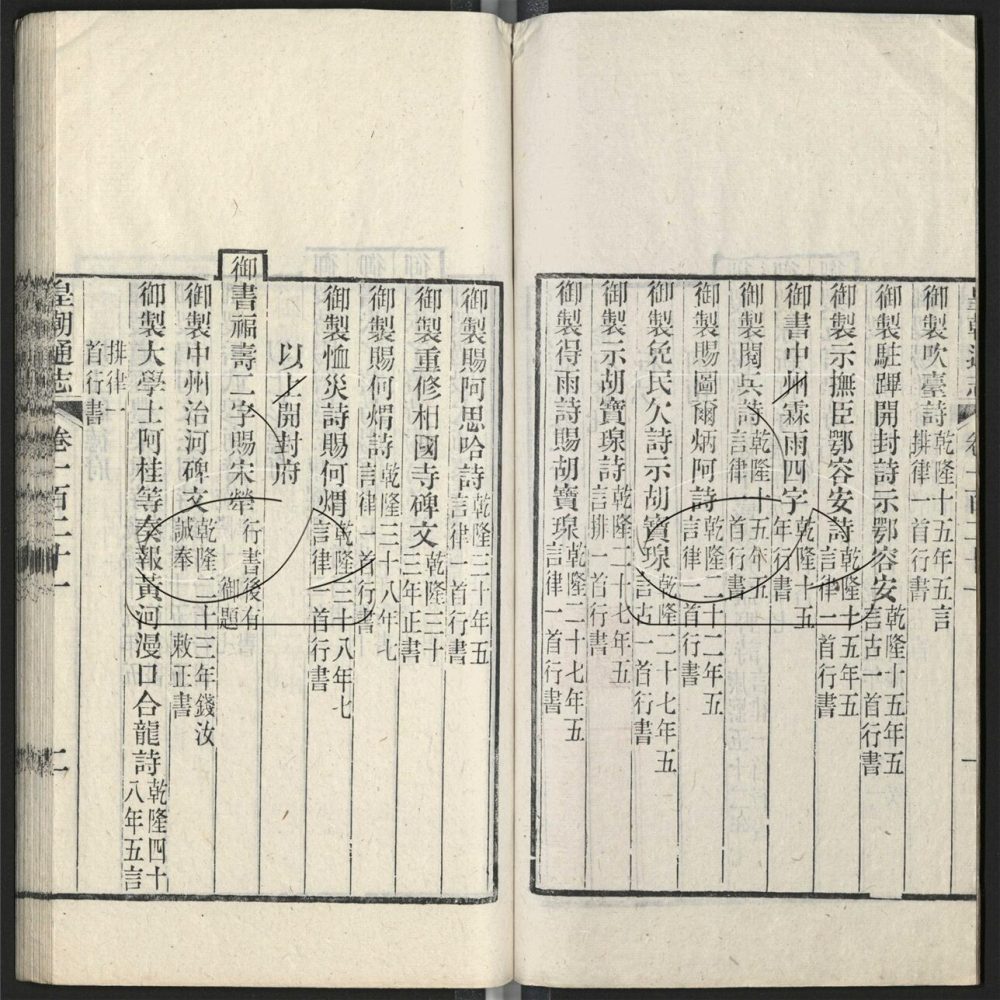 御製吹臺詩乾隆十五年五言排律一首行書
御製駐蹕開封詩示鄂容安乾隆十五年五言古一首行書
御製示撫臣鄂容安詩乾隆十五年五言律一首行書
御書中州霖雨四字乾隆十五年行書
御製閱兵詩乾隆十五年五言律一首行書
御製賜圖爾炳阿詩乾隆二十二年五言律一首行書
御製免民欠詩示胡寶瑔乾隆二十七年五言古一首行書
御製示胡寶瑔詩乾隆二十七年五言排一首行書
御製得雨詩賜胡寶瑔乾隆二十七年五言律一首行書
御製賜阿思哈詩乾隆三十年五言律一首行書
御製重修相國寺碑文乾隆三十三年正書
御製賜何煟詩乾隆三十八年七言律一首行書
御製恤災詩賜何煟乾隆三十八年七言律一首行書
以上開封府
御書福壽二字賜宋犖行書後有御題
御製中州治河碑文乾隆二十三年錢汝誠奉敕正書
御製大學士阿桂等奏報黃河漫口合龍詩乾隆四十八年五言
排律一首行書
皇朝通志 卷一百二十一 二